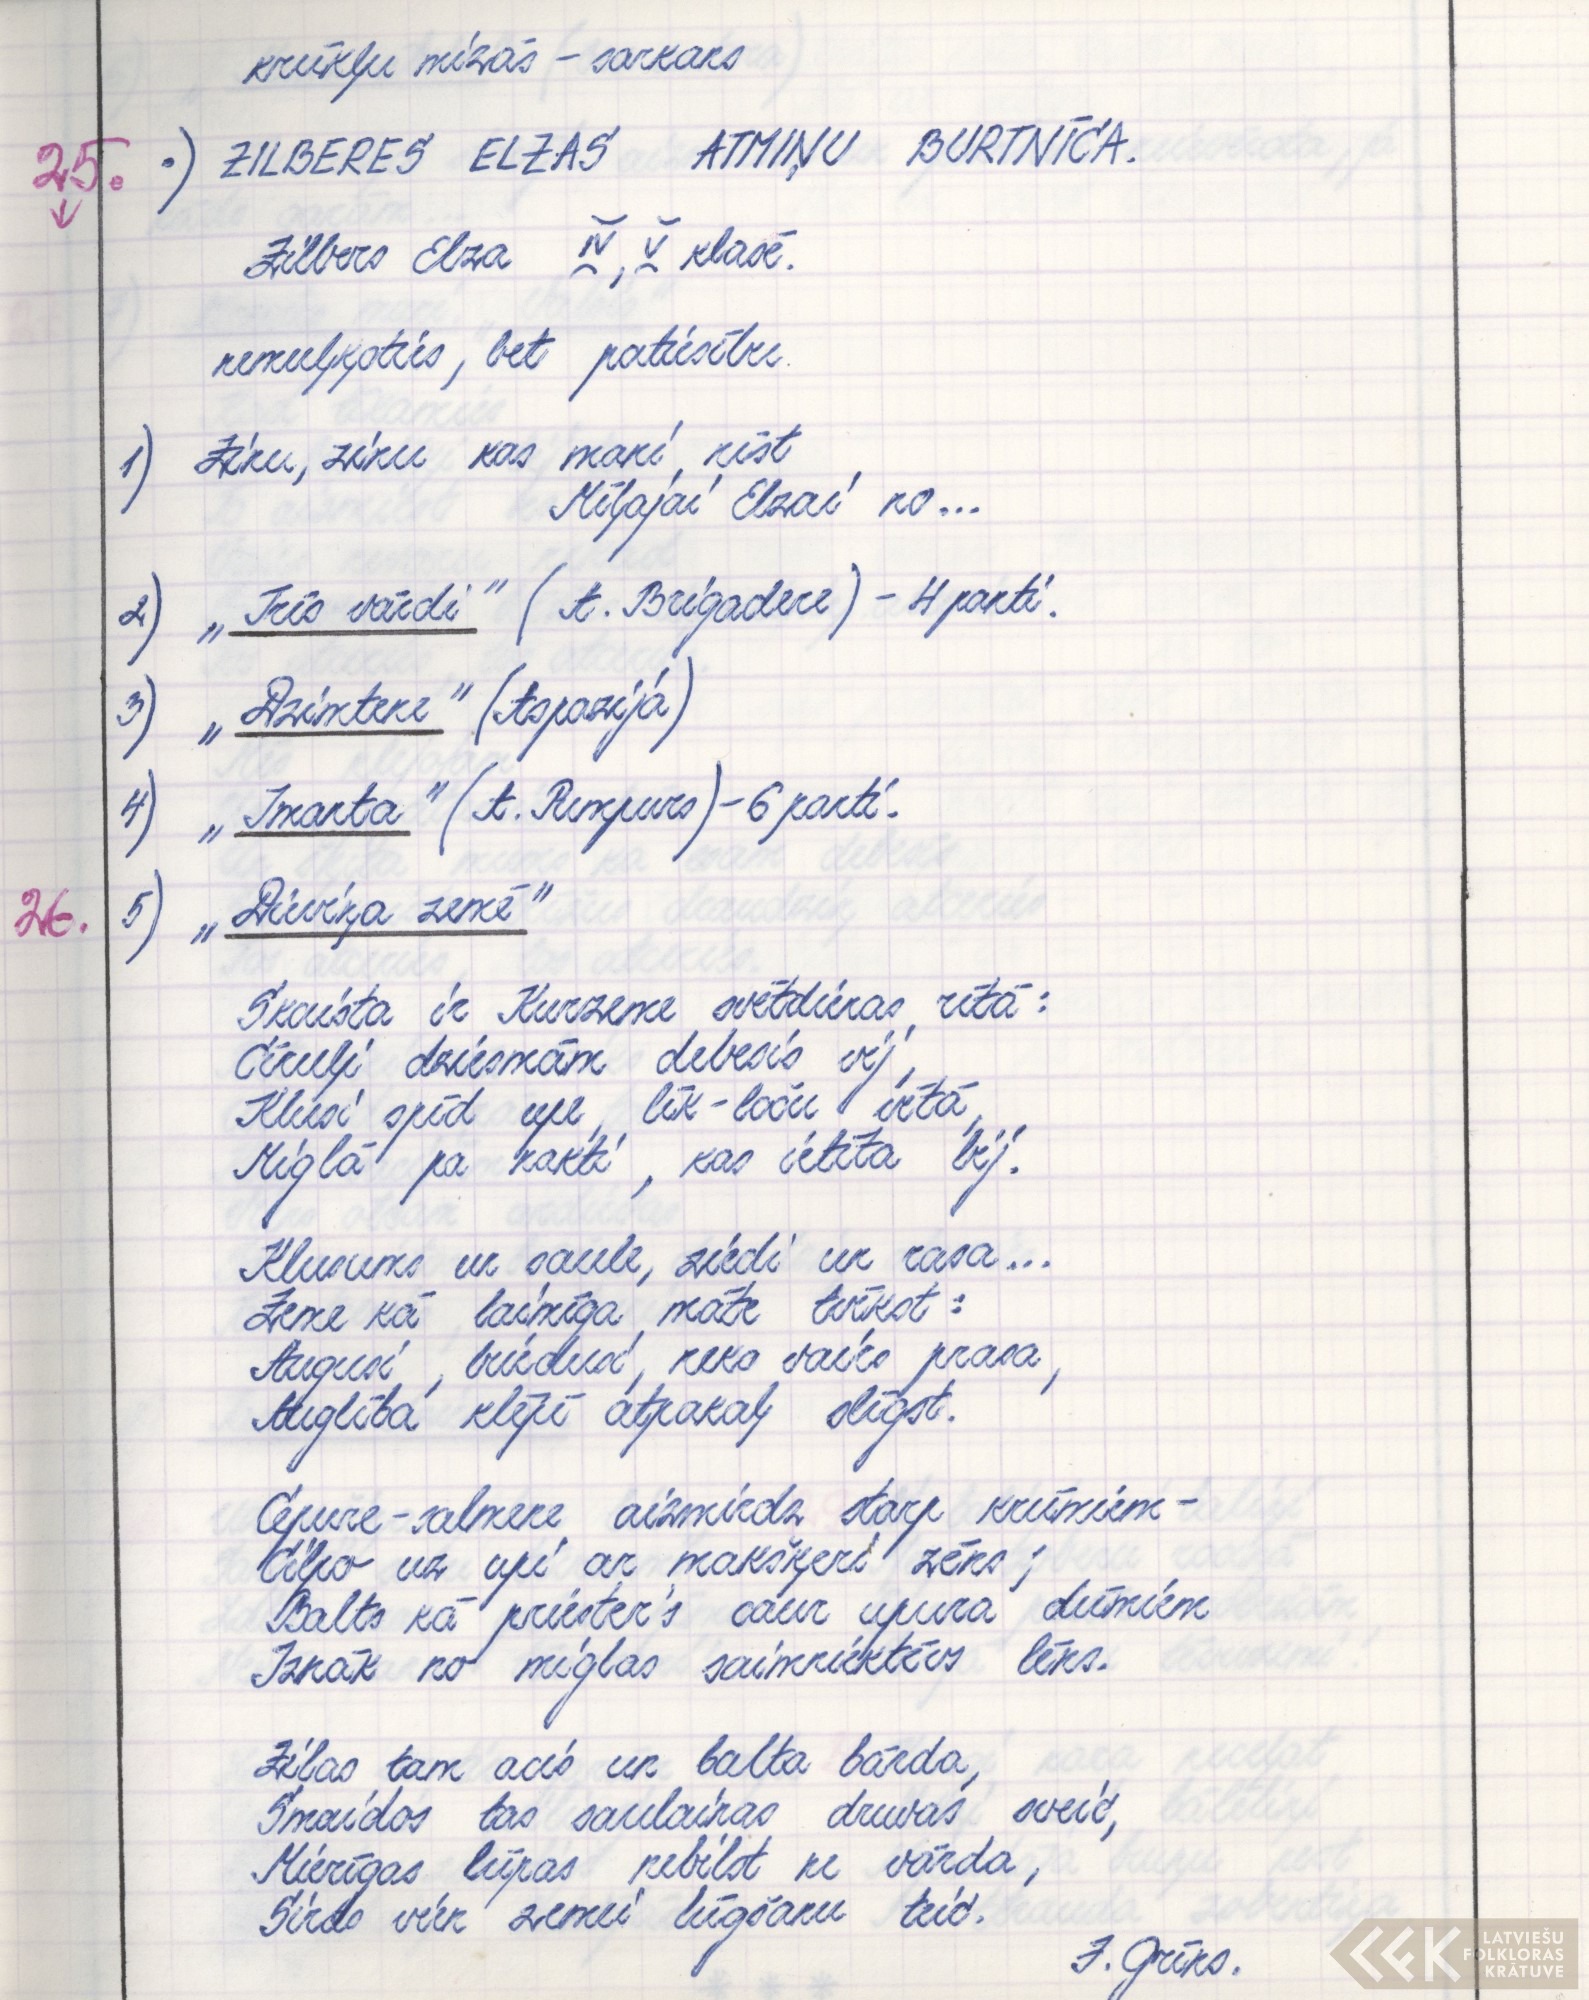 krūkļu mizās - sarkans
25. •) ZILBERES ELZAS ATMIŅU BURTNĪCA.
Zilbers Elza IV, V klasē.
nemuļķoties, bet patiesību.
1) Zinu, zinu kas mani nīst
Mīļajai Elzai no...
2) „Trīs vārdi" (A. Brigadere) - 4 panti.
3) „Dzimtene" (Aspazija)
4) „Imanta" (A. Pumpurs) - 6 panti.
26. 5) „Dieviņa zemē"
Skaista ir Kurzeme svētdienas rītā:
Cīruļi dziesmām debesis vij,
Klusi spīd upe, līk-loču vītā,
Miglā pa nakti, kas ietīta bij.
Klusums un saule, ziedi un rasa...
Zeme kā laimīga māte tvīkst:
Augusi, briedusi, neko vairs prasa,
Auglībā klēpī atpakaļ slīgst.
Cepure-salmene aizmirdz starp krūmiem-
Cilpo uz upi ar makšķeri zēns;
Balts kā priester's caur upura dūmiem
Iznāk no miglas saimniektēvs lēns.
Zilas tam acis un balta bārda,
Smaidos tas saulainas druvas sveic,
Mierīgas lūpas nebilst ne vārda,
Sirds vien zemei lūgšanu teic.
J. Grīns.
LATVIEŠU
FOLKLORAS
KRĀTUVE